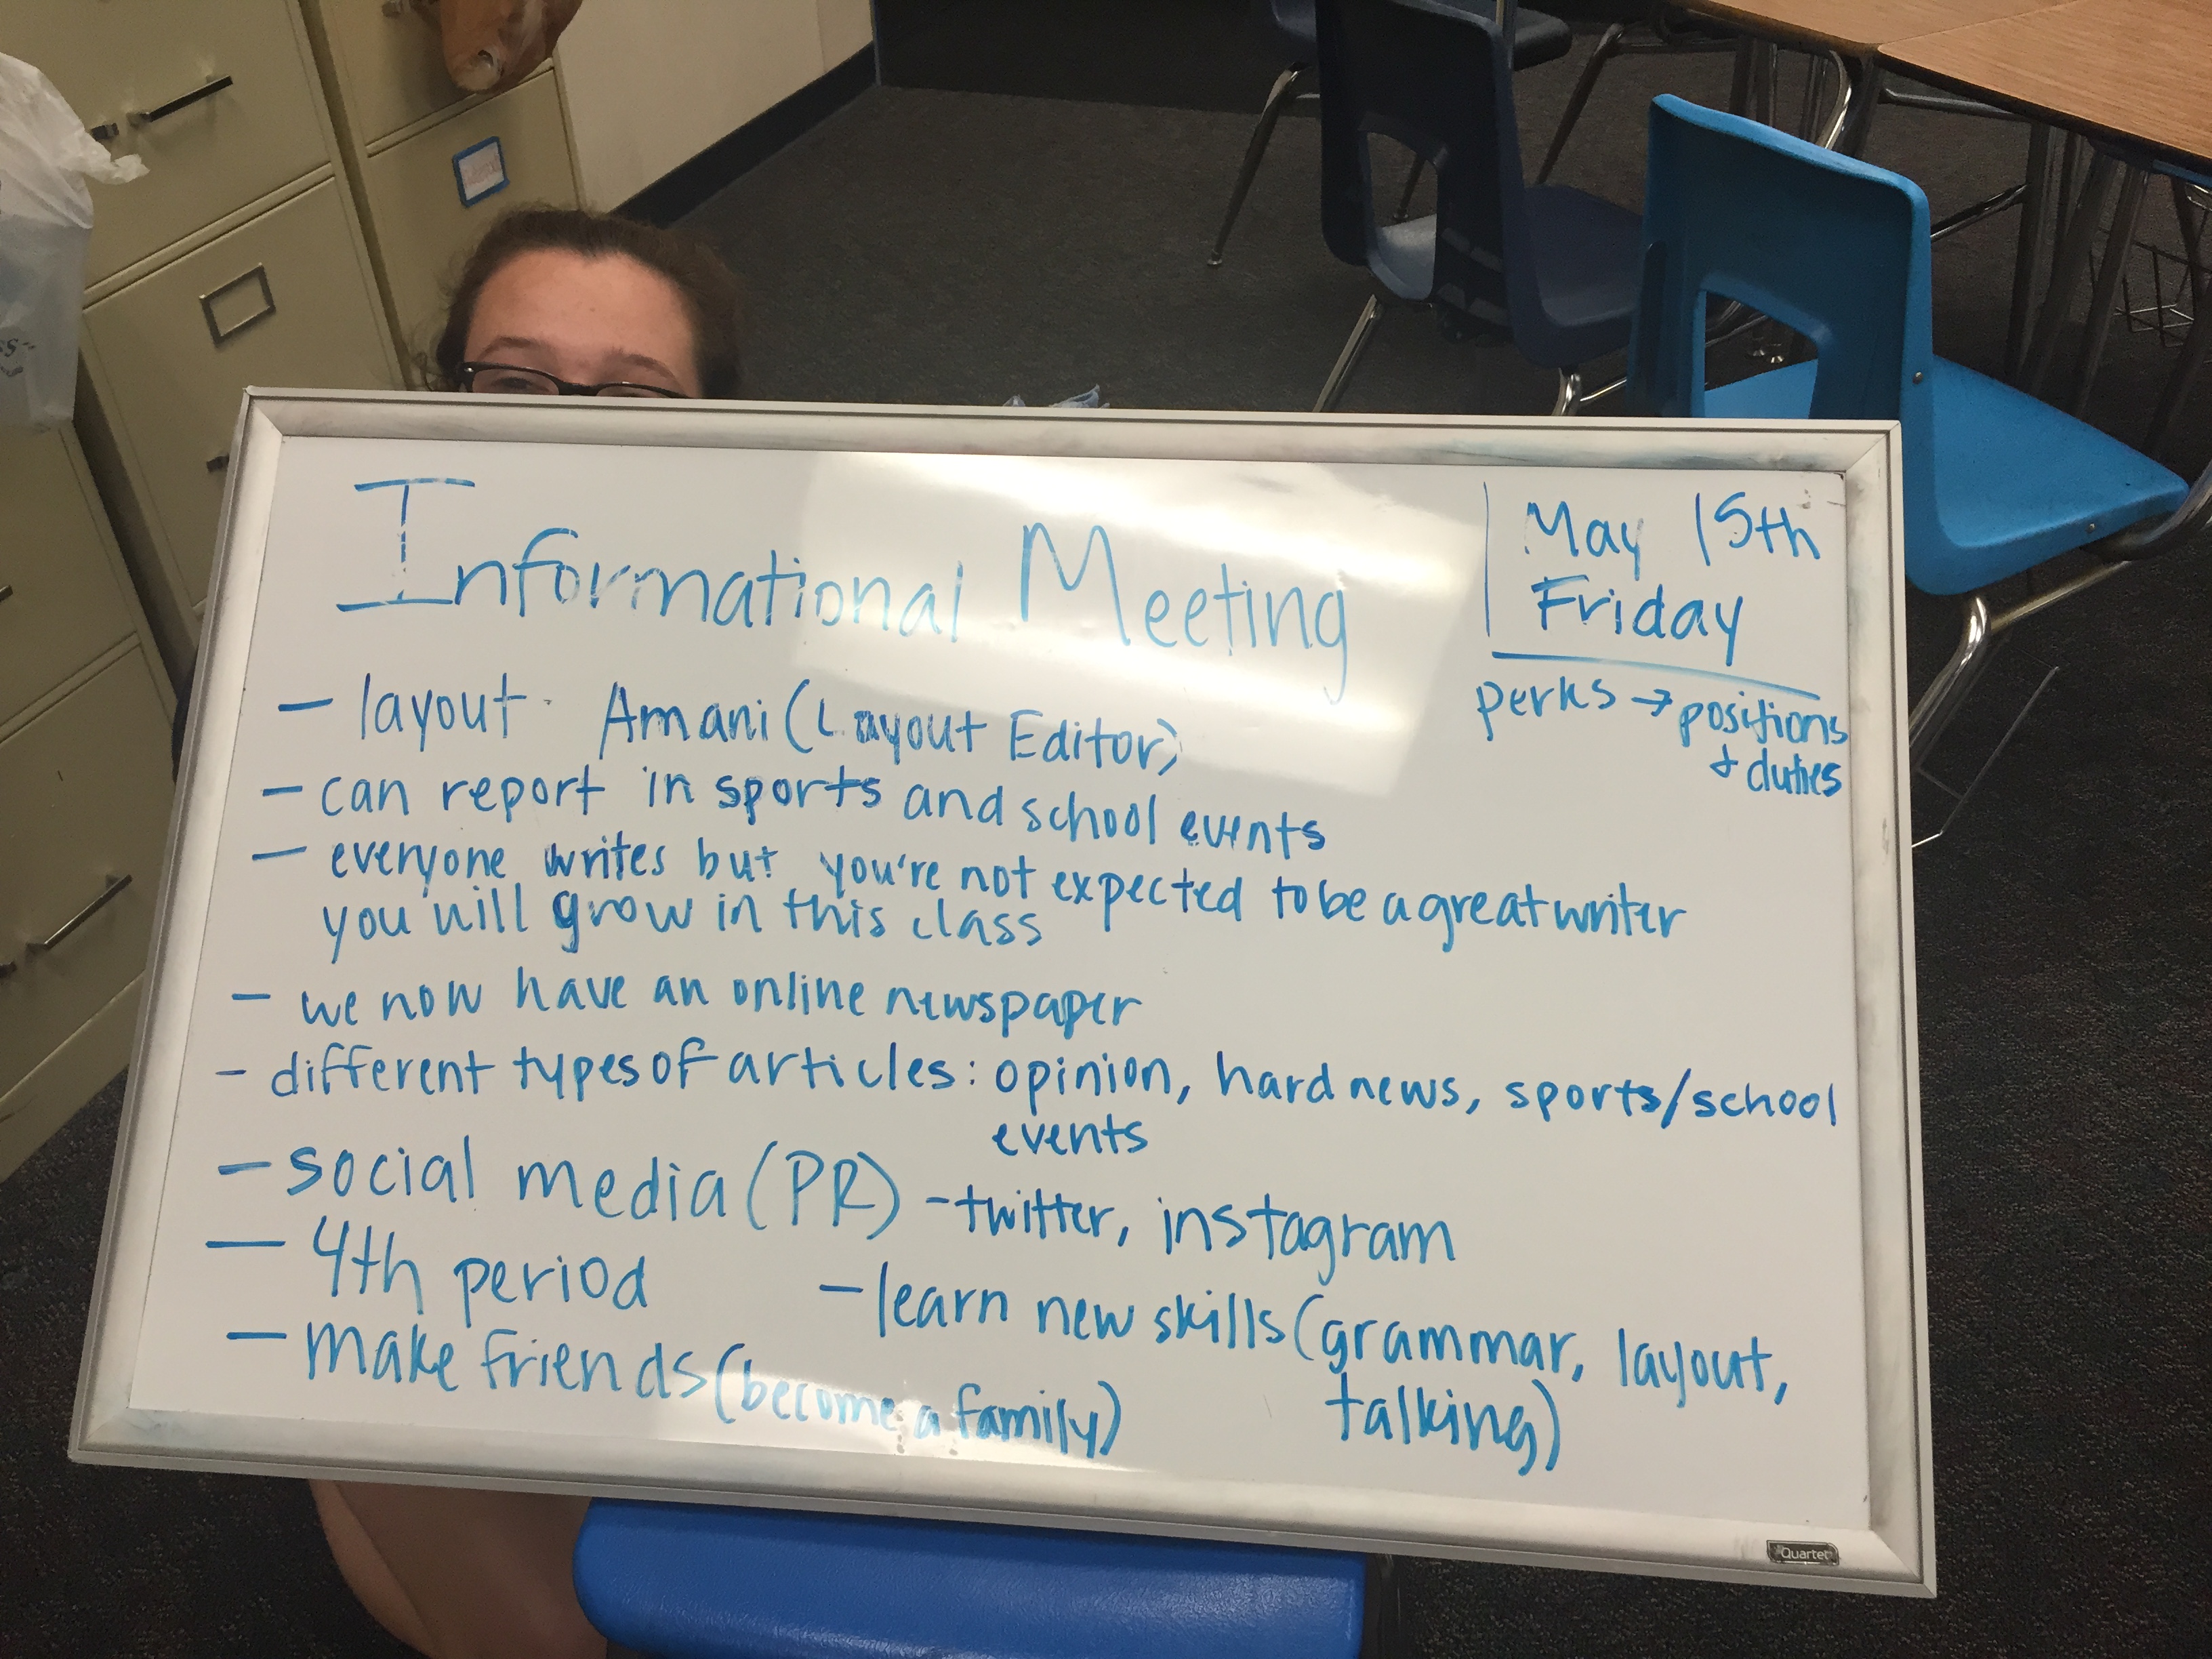 Informational Meeting
May 15th
Friday
perks → positions
+ duties
- layout - Amani (Layout Editor)
- can report in sports and school events
- everyone writes but you're not expected to be a great writer
you will grow in this class
- we now have an online newspaper
- different types of articles: opinion, hard news, sports/school
events
- social media (PR) - twitter, instagram
- 4th period
- learn new skills (grammar, layout,
talking)
- make friends (become a family)
Quartet